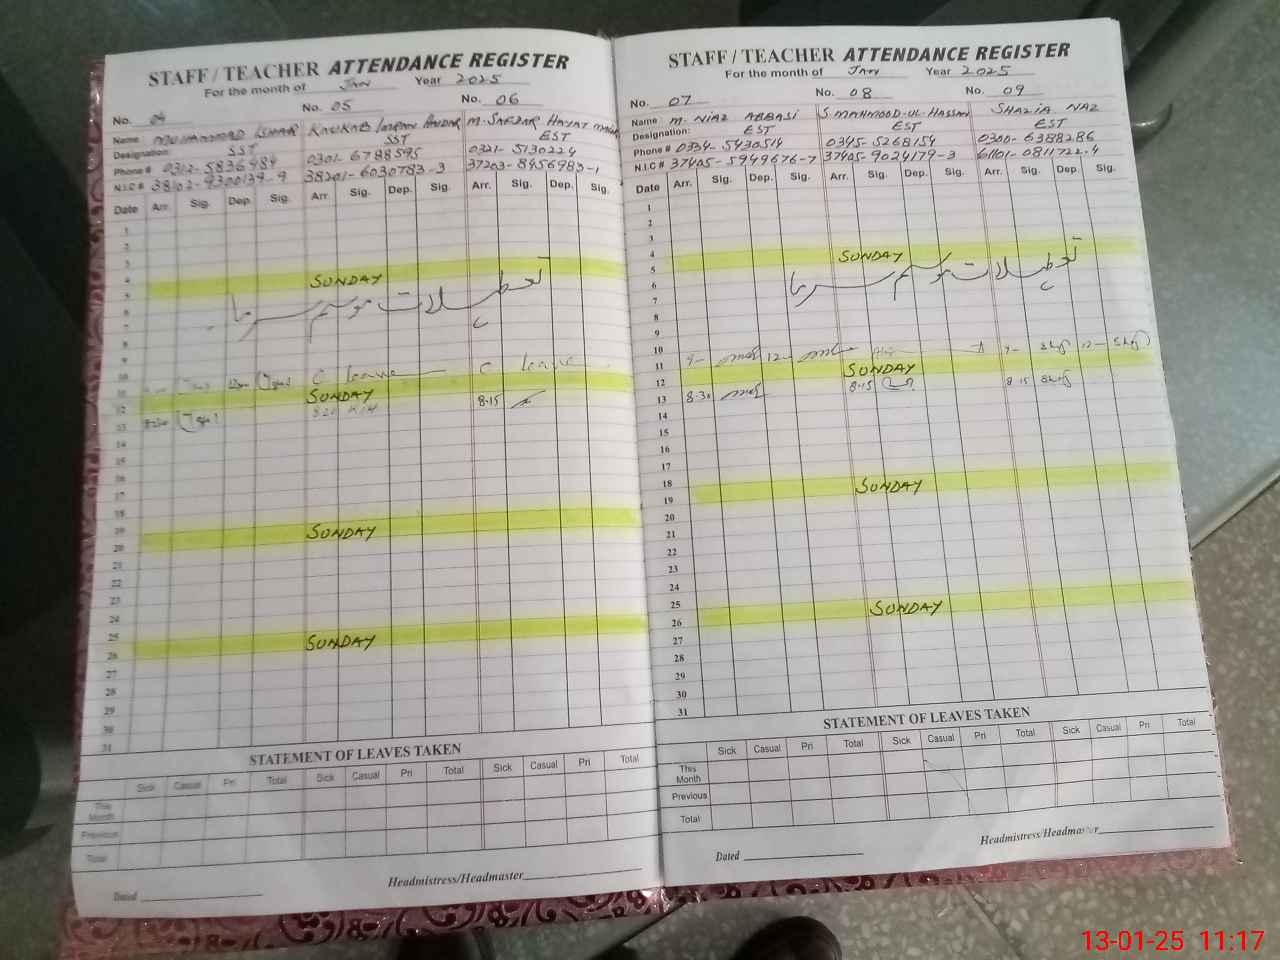 STAFF / TEACHER ATTENDANCE REGISTER
For the month of JAN Year 2025
No. 04 No. 05 No. 06
Name MUHAMMAD M. SARDAR HAYAT
Designation: SST SST EST
Phone # 0312-5836484 0301-6788595 0321-5130224
N.I.C # 38102-9300139-9 38201-6030783-3 37203-8456983-1
Date Arr. Sig. Dep. Sig. Arr. Sig. Dep. Sig. Arr. Sig. Dep. Sig.
1
2
3
4 SUNDAY
5
تعطیلات موسم سرما
6
7
8
9
10 C leave C leave
11 SUNDAY
12
13 8-15
14
15
16
17
18
19 SUNDAY
20
21
22
23
24
25 SUNDAY
26
27
28
29
30
31
STATEMENT OF LEAVES TAKEN
Sick Casual Pri Total Sick Casual Pri Total Sick Casual Pri Total
This Month
Previous
Total
Dated Headmistress/Headmaster
STAFF / TEACHER ATTENDANCE REGISTER
For the month of JAN Year 2025
No. 07 No. 08 No. 09
Name M. NIAZ ABBASI S MAHMOOD-UL-HASSAN SHAZIA NAZ
Designation: EST EST EST
Phone # 0334-5430514 0345-5268154 0300-6388286
N.I.C # 37405-5949676-7 37405-9024179-3 61101-0811722-4
Date Arr. Sig. Dep. Sig. Arr. Sig. Dep. Sig. Arr. Sig. Dep. Sig.
1
2
3
4 SUNDAY
5
تعطیلات موسم سرما
6
7
8
9
10 9- 12- 9- 12-
11 SUNDAY
12
13 8-30 8-15 8-15
14
15
16
17
18 SUNDAY
19
20
21
22
23
24
25 SUNDAY
26
27
28
29
30
31
STATEMENT OF LEAVES TAKEN
Sick Casual Pri Total Sick Casual Pri Total Sick Casual Pri Total
This Month
Previous
Total
Dated Headmistress/Headmaster
13-01-25 11:17